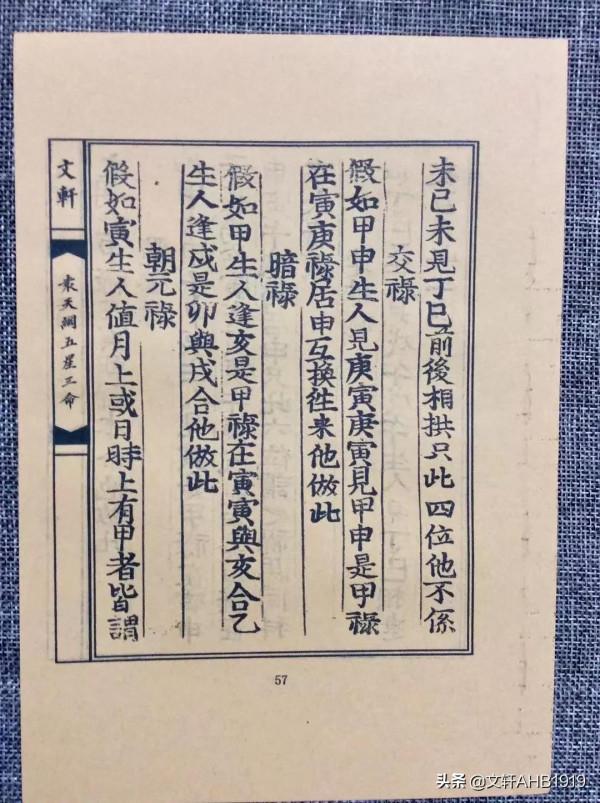 未己未見丁巳前後相拱只此四位他不係
交禄
假如甲申生人見庚寅庚寅見甲申是甲禄
在寅庚禄居申互換徃来他倣此
暗禄
假如甲生人逢亥是甲禄在寅寅與亥合乙
生人逢戌是卯與戌合他倣此
朝元禄
假如寅生人值月上或日時上有甲者皆謂
文軒
袁天綱五星三命
57
头条 @文轩AHB1919